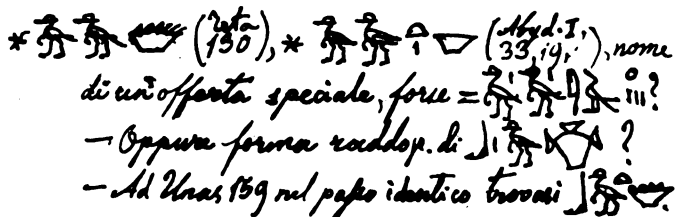 * (Teta 130), * (Abyd. I, 33, 19, ), nome
di un'offerta speciale, forse = ?
— Oppure forma raddop. di ?
— Ad Unas 159 nel passo identico trovasi